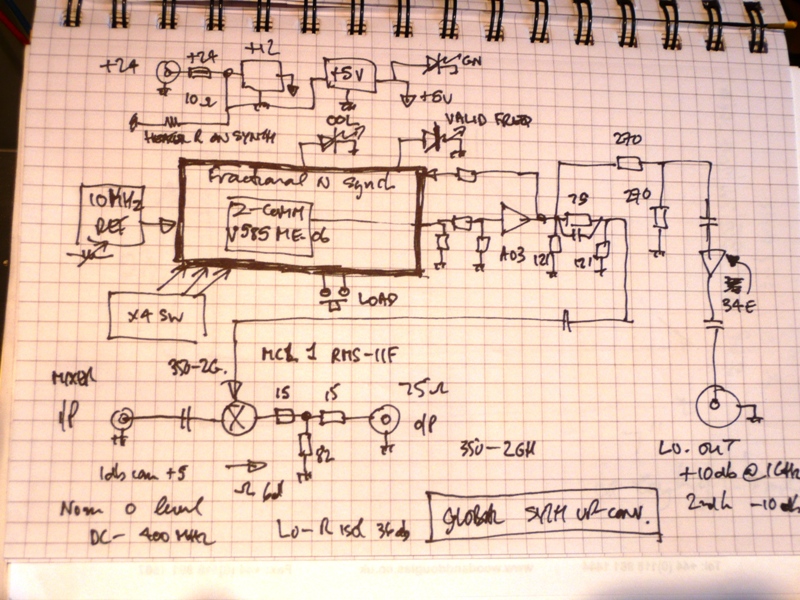 +24
+24
10Ω
+12
+5V
GN
+5V
HEATER R ON SYNTH
OOL
VALID FREQ
Fractional N Synth
10MHz
REF
Z-COMM
V585 ME-06
X4 SW
LOAD
A03
121
75
121
270
270
34E
350-2G.
MCL 1 RMS-11F
MIXER
I/P
15
15
82
75Ω
O/P
1db com +5
350-2GH
LO. OUT
+10db @ 1GHz
2ndh -10db
Nom 0 level
DC- 400MHz
LO-R isol 36db
GLOBAL SYNTH UP-CONV.